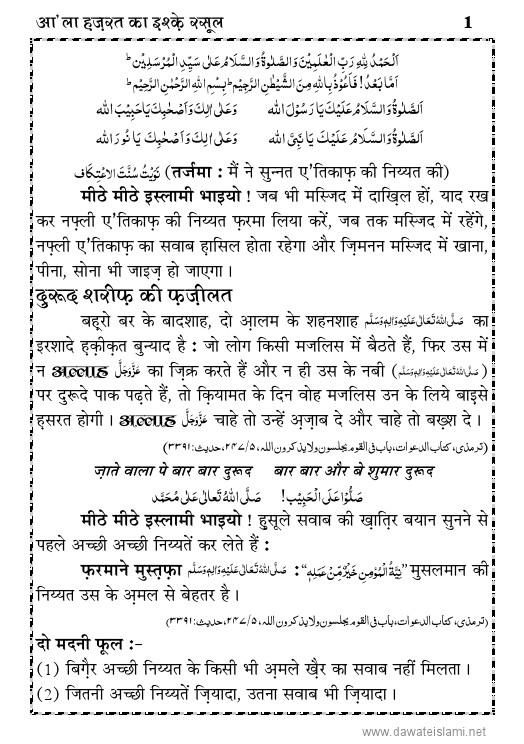 आ'ला हज़रत का इश्क़े रसूल 1
اَلْحَمْدُ لِلّٰهِ رَبِّ الْعٰلَمِيْنَ وَالصَّلٰوةُ وَالسَّلَامُ عَلٰى سَيِّدِ الْمُرْسَلِيْنَ ط
اَمَّا بَعْدُ! فَاَعُوْذُ بِاللّٰهِ مِنَ الشَّيْطٰنِ الرَّجِيْمِ ط بِسْمِ اللّٰهِ الرَّحْمٰنِ الرَّحِيْمِ ط
اَلصَّلٰوةُ وَالسَّلَامُ عَلَيْكَ يَا رَسُوْلَ الله وَعَلٰى اٰلِكَ وَاَصْحٰبِكَ يَا حَبِيْبَ الله
اَلصَّلٰوةُ وَالسَّلَامُ عَلَيْكَ يَا نَبِىَّ الله وَعَلٰى اٰلِكَ وَاَصْحٰبِكَ يَا نُوْرَ الله
نَوَيْتُ سُنَّتَ الْاِعْتِكَاف (तर्जमा : मैं ने सुन्नत ए'तिकाफ़ की निय्यत की)
मीठे मीठे इस्लामी भाइयो ! जब भी मस्जिद में दाख़िल हों, याद रख
कर नफ़्ली ए'तिकाफ़ की निय्यत फ़रमा लिया करें, जब तक मस्जिद में रहेंगे,
नफ़्ली ए'तिकाफ़ का सवाब हासिल होता रहेगा और ज़िमनन मस्जिद में खाना,
पीना, सोना भी जाइज़ हो जाएगा ।
दुरूद शरीफ़ की फ़ज़ीलत
बह़रो बर के बादशाह, दो आ़लम के शहनशाह صَلَّى اللهُ تَعَالٰى عَلَيْهِ وَاٰلِهٖ وَسَلَّم का
इरशादे ह़क़ीक़त बुन्याद है : जो लोग किसी मजलिस में बैठते हैं, फिर उस में
न अल्लाह عَزَّوَجَلَّ का ज़िक्र करते हैं और न ही उस के नबी (صَلَّى اللهُ تَعَالٰى عَلَيْهِ وَاٰلِهٖ وَسَلَّم)
पर दुरूदे पाक पढ़ते हैं, तो क़ियामत के दिन वोह मजलिस उन के लिये बाइसे
ह़सरत होगी । अल्लाह عَزَّوَجَلَّ चाहे तो उन्हें अ़ज़ाब दे और चाहे तो बख़्श दे ।
(ترمذی، کتاب الدعوات، باب فی القوم یجلسون ولا یذکرون اللہ، ۲۴۷/۵، حدیث: ۳۳۹۱)
ज़ाते वाला पे बार बार दुरूद बार बार और बे शुमार दुरूद
صَلُّوْا عَلَى الْحَبِيْب! صَلَّى اللهُ تَعَالٰى عَلٰى مُحَمَّد
मीठे मीठे इस्लामी भाइयो ! ह़ुसूले सवाब की ख़ात़िर बयान सुनने से
पहले अच्छी अच्छी निय्यतें कर लेते हैं :
फ़रमाने मुस्त़फ़ा صَلَّى اللهُ تَعَالٰى عَلَيْهِ وَاٰلِهٖ وَسَلَّم : "نِيَّةُ الْمُؤْمِنِ خَيْرٌ مِّنْ عَمَلِهٖ" मुसलमान की
निय्यत उस के अ़मल से बेहतर है ।
(ترمذی، کتاب الدعوات، باب فی القوم یجلسون ولا یذکرون اللہ، ۲۴۷/۵، حدیث: ۳۳۹۱)
दो मदनी फूल :-
(1) बिग़ैर अच्छी निय्यत के किसी भी अ़मले ख़ैर का सवाब नहीं मिलता ।
(2) जितनी अच्छी निय्यतें ज़ियादा, उतना सवाब भी ज़ियादा ।
www.dawateislami.net